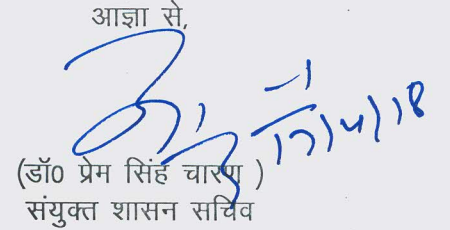 आज्ञा से,
17/4/18
(डॉ0 प्रेम सिंह चारण )
संयुक्त शासन सचिव